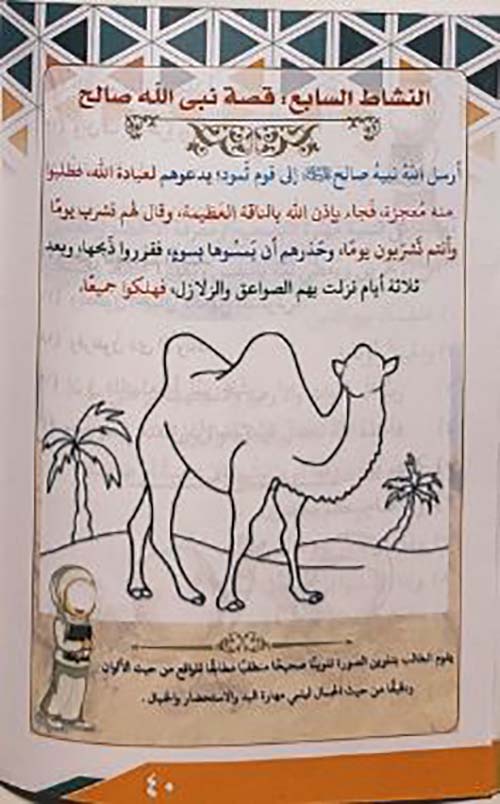 النشاط السابع: قصة نبي الله صالح
أرسل اللهُ نبيهُ صالح إلى قوم ثمود؛ يدعوهم لعبادة الله، فطلبوا
منه مُعجزة، فجاء بإذن الله بالناقة العظيمة، وقال لهم تشرب يومًا
وأنتم تشربون يومًا، وحذرهم أن يمسُّوها بسوءٍ، فقرروا ذبحها، وبعد
ثلاثة أيام نزلت بهم الصواعق والزلازل، فهلكوا جميعًا.
يقوم الطالب بتلوين الصورة تلوينًا صحيحًا مطابقًا للواقع من حيث الألوان
ودقيقًا من حيث الجمال لينمي مهارة اليد والاستحضار والخيال.
٤٠